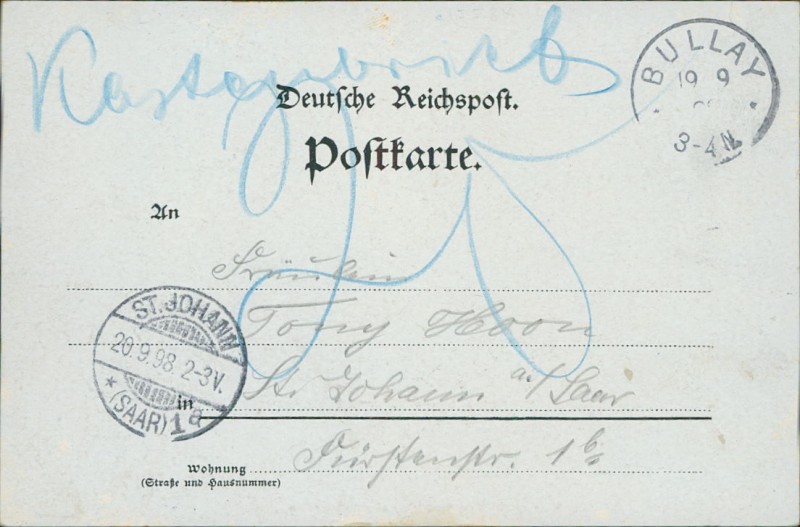 Kastenbrief
25
BULLAY
19 9
3-4 N.
Deutsche Reichspost.
Postkarte.
An
Fräulein
Tony Hoon
ST. JOHANN
20.9.98 2-3V.
* (SAAR) 1a
St. Johann a./Saar
in
Fürstenstr. 1b
Wohnung
(Straße und Hausnummer)